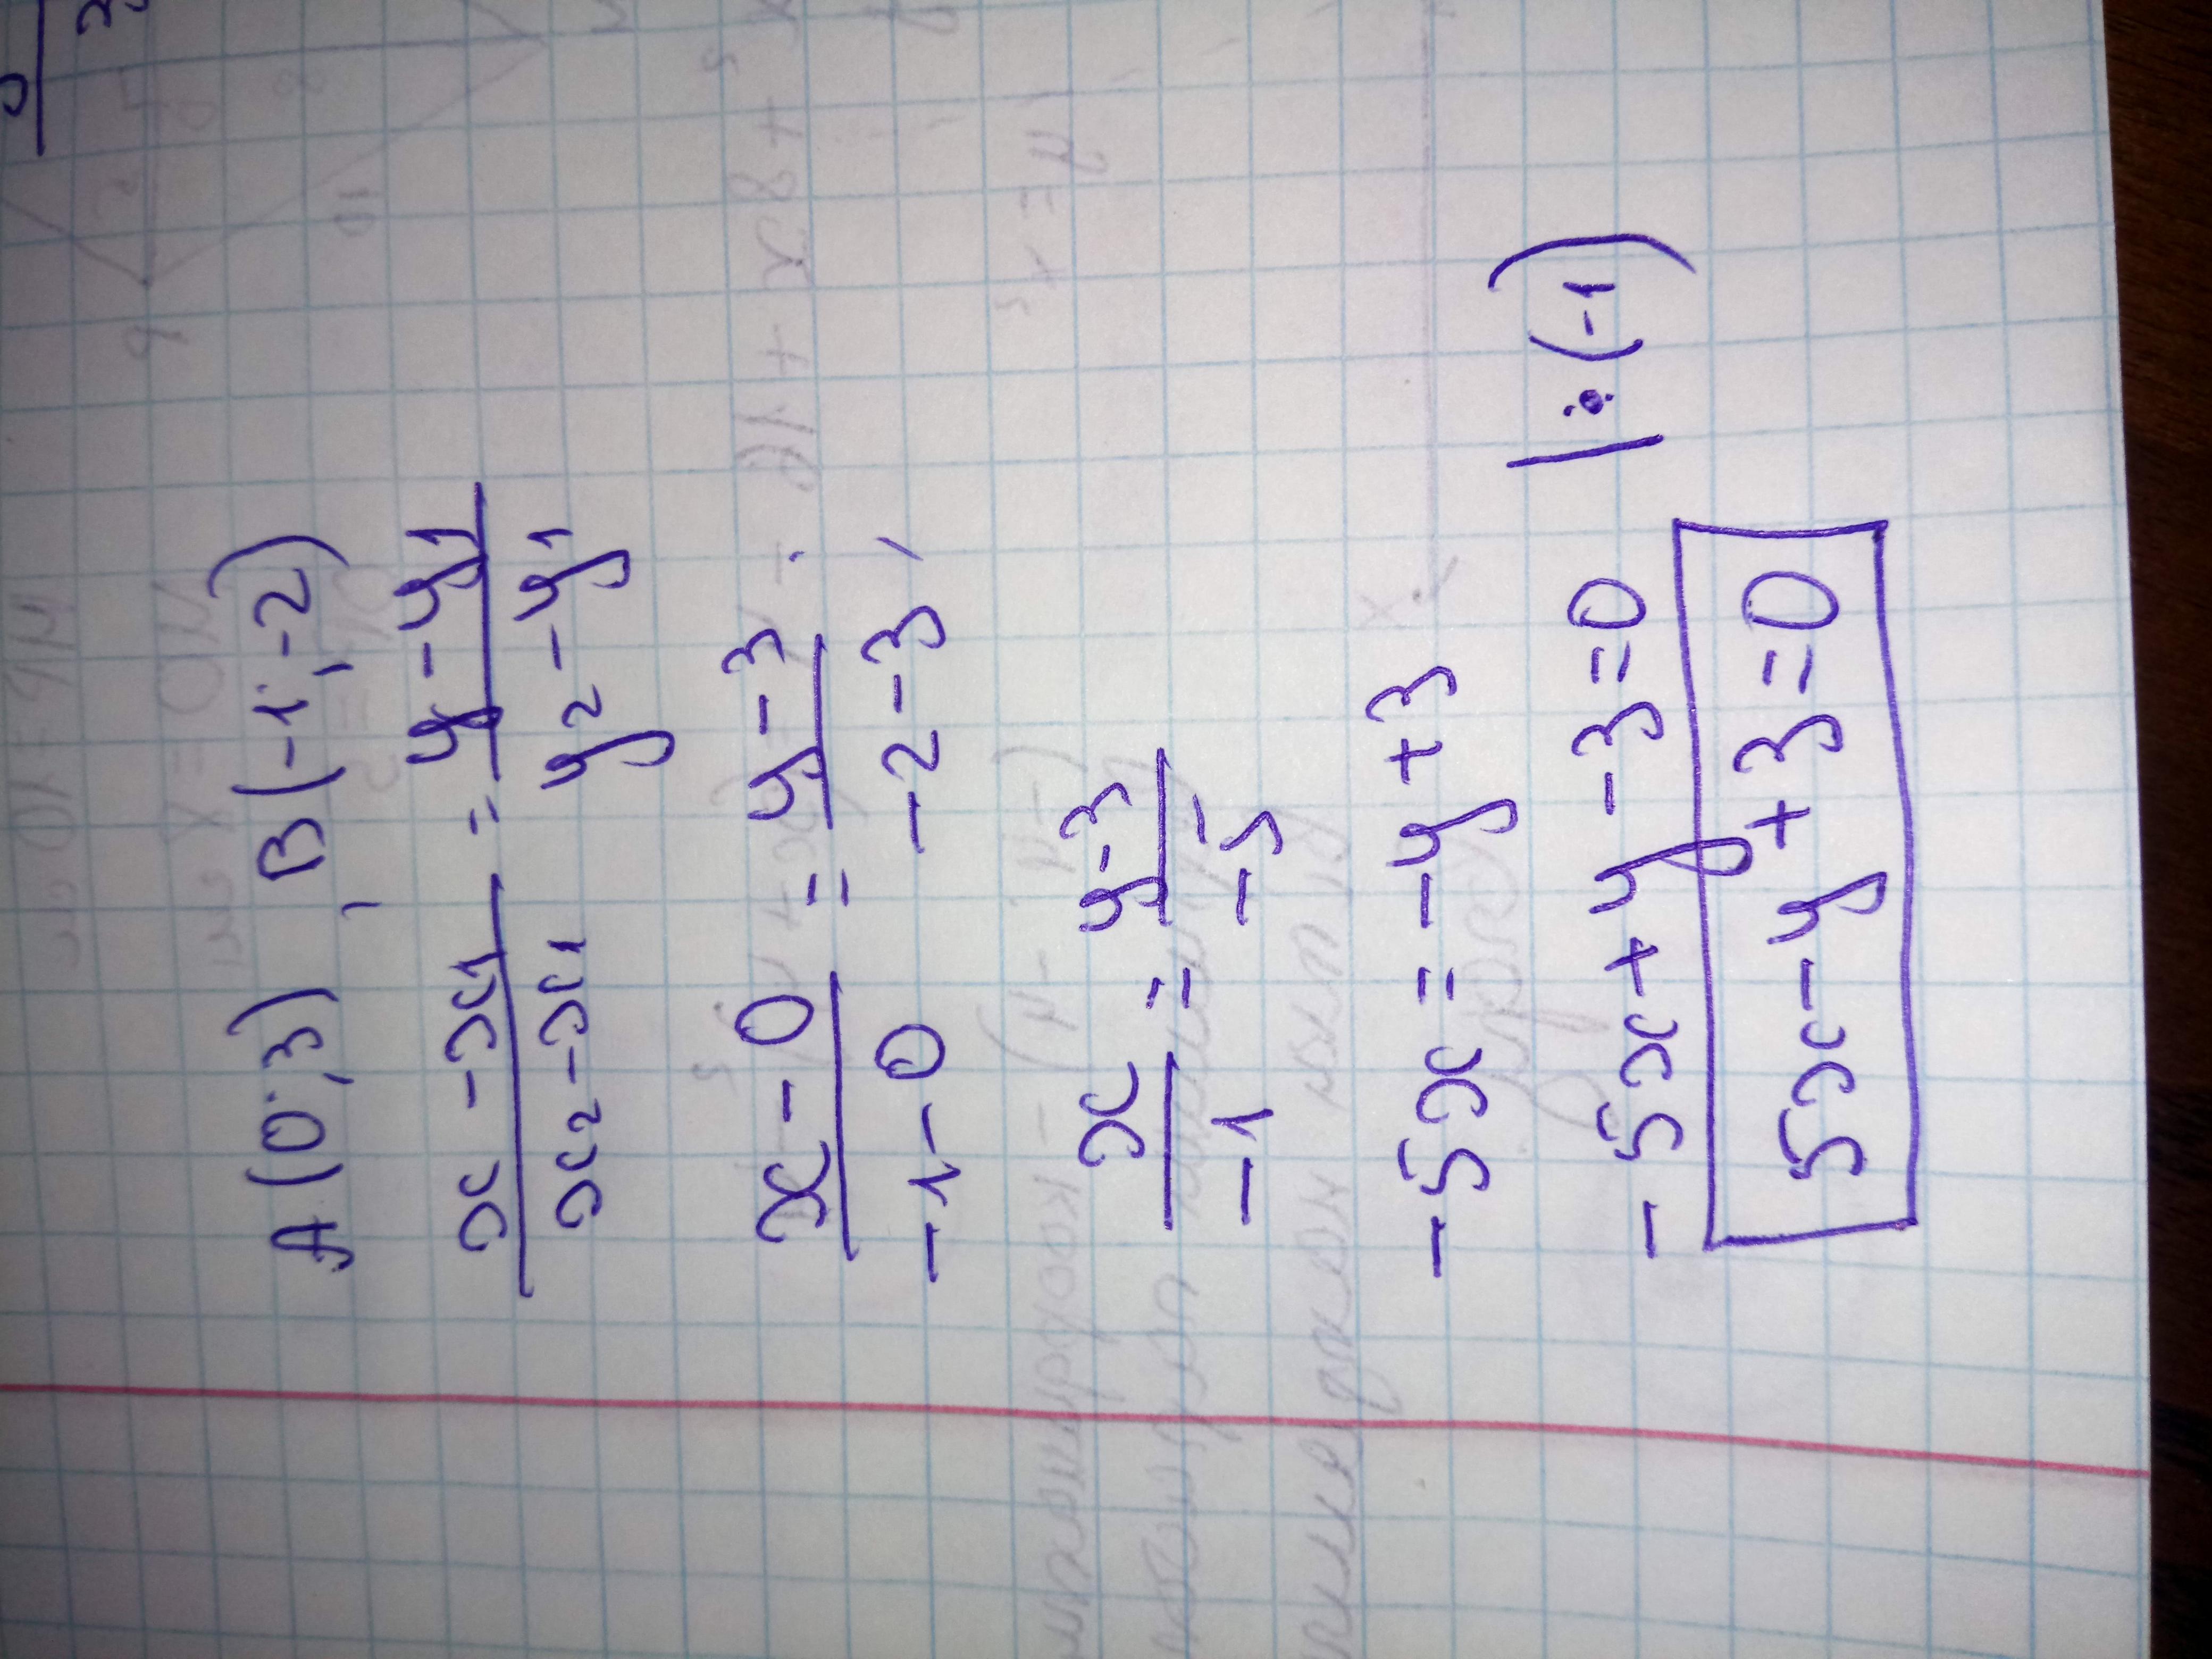 A(0;3), B(-1;-2)
x-x1/x2-x1 = y-y1/y2-y1
x-0/-1-0 = y-3/-2-3;
x/-1 = y-3/-5
-5x=-y+3
-5x+y-3=0 |:(-1)
5x-y+3=0